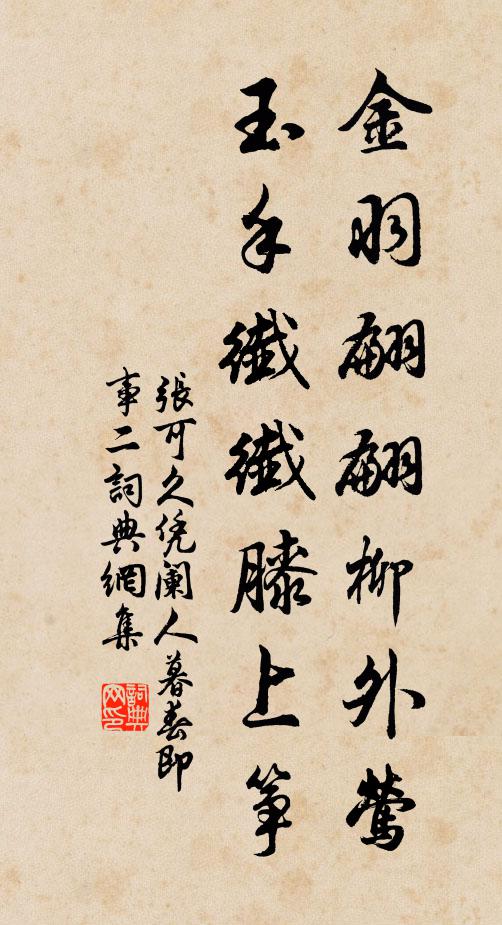 金羽翩翩柳外鶯
玉手纖纖膝上箏
張可久凭闌人暮春即
事二詞典網集
詞典
网印